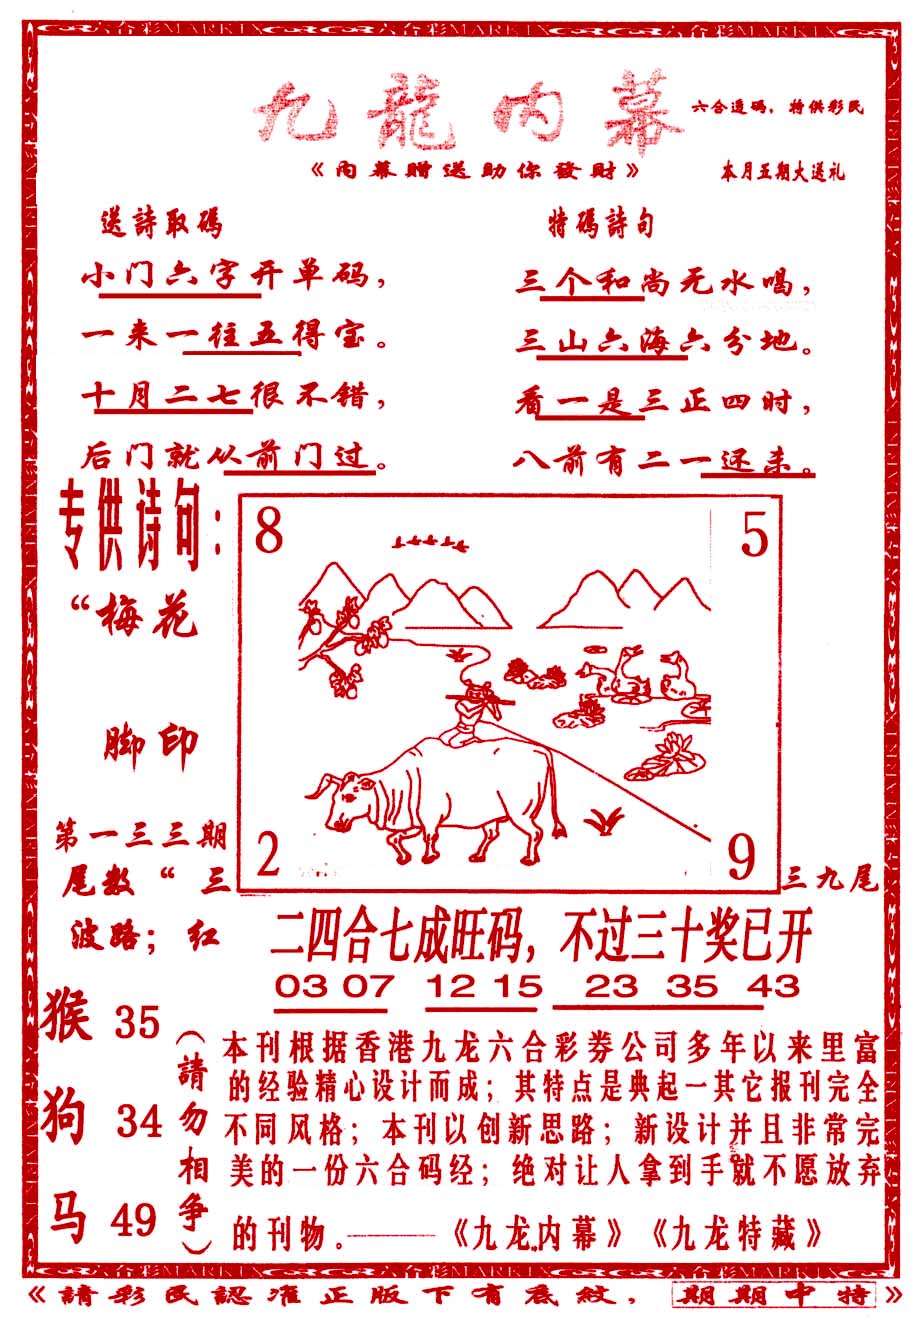 六合彩MARK
九龍内幕
六合透码，特供彩民
《内幕赠送助你發財》
本月五期大送礼
送詩取碼
小门六字开单码，
一来一往五得宝。
十月二七很不错，
后门就从前门过。
特碼詩句
三个和尚无水喝，
三山六海六分地。
看一是三正四时，
八前有二一还来。
专供诗句：
“梅花
脚印
第一三三期
尾数“三
三九尾
波路；红
8
5
2
9
二四合七成旺码，不过三十奖已开
03 07 12 15 23 35 43
猴 35
狗 34
马 49
（請勿相争）
本刊根据香港九龙六合彩劵公司多年以来里富
的经验精心设计而成；其特点是典起一其它报刊完全
不同风格；本刊以创新思路；新设计并且非常完
美的一份六合码经；绝对让人拿到手就不愿放弃
的刊物。——《九龙内幕》《九龙特藏》
《請彩民認准正版下有底紋，期期中特》